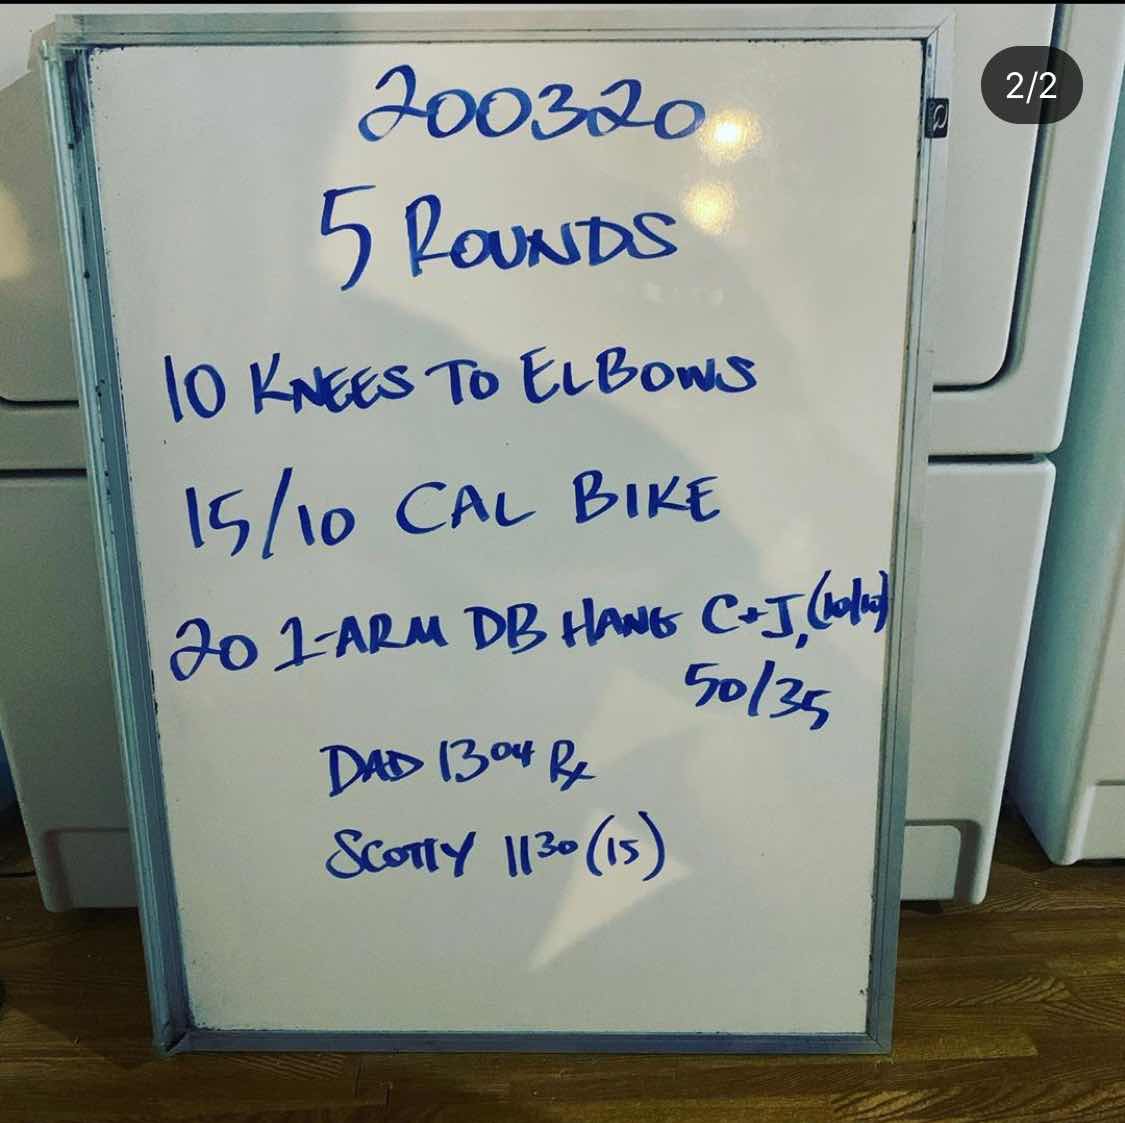 2/2
200320
5 ROUNDS
10 KNEES TO ELBOWS
15/10 CAL BIKE
20 1-ARM DB HANG C+J, (10/10)
50/35
DAD 1304 Rx
SCOTTY 1130 (15)